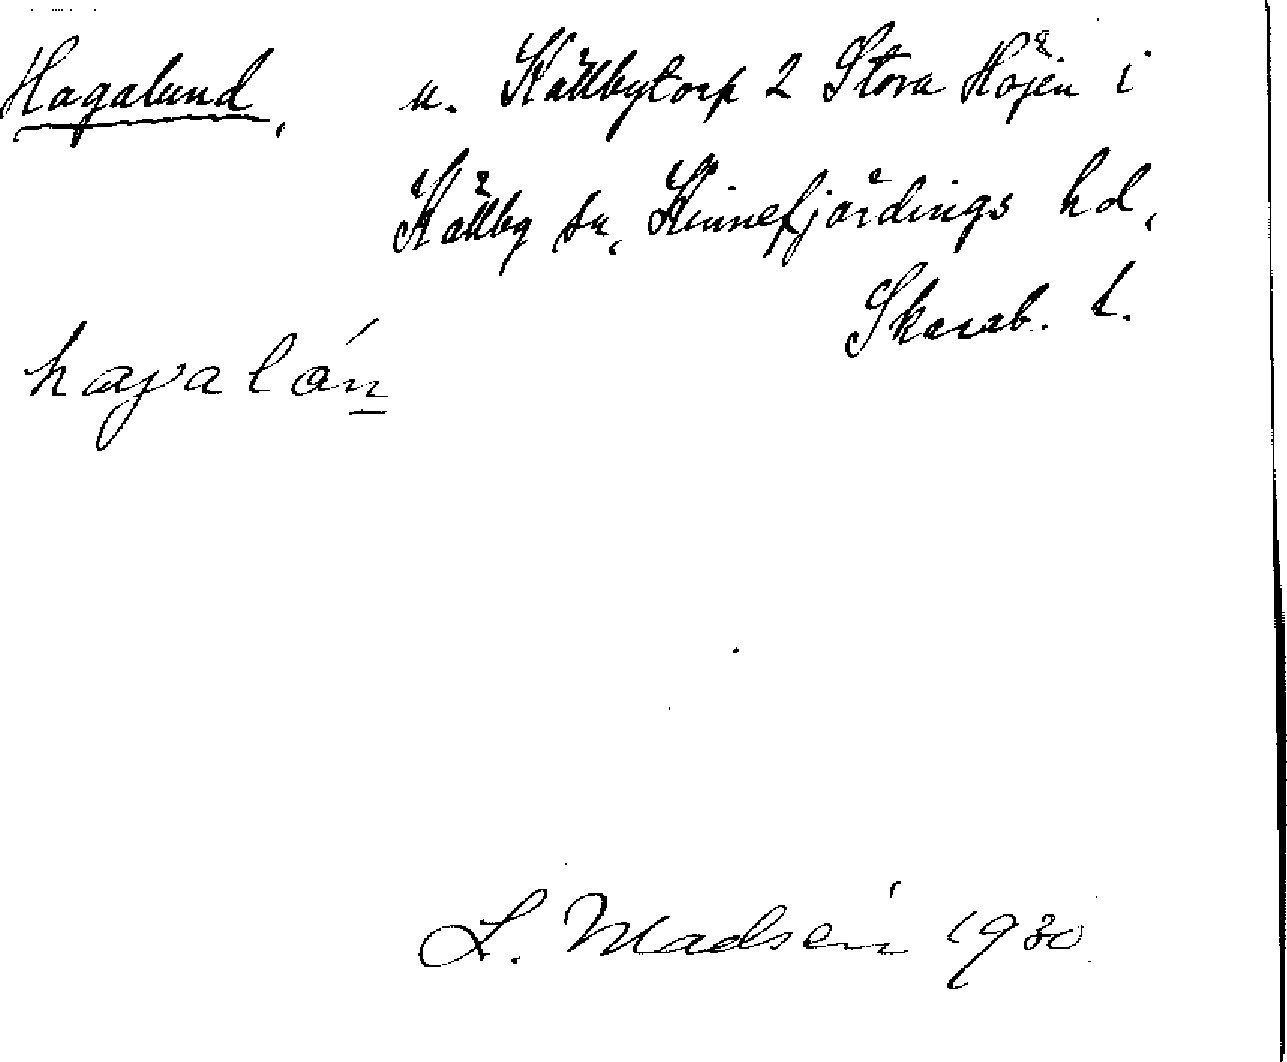 Hagalund, u. Källbytorp 2 Stora Höjen i
Källby sn, Kinnefjärdings hd,
Skarab. l.
hagalán
L. Madsén 1930